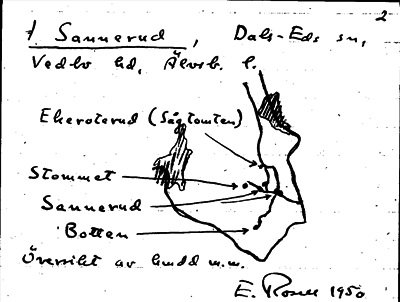 2
f. Sannerud, Dals-Eds sn,
Vedbo hd, Älvsb. l.
Ekeroterud (Sågtomten)
Stommet
Sannerud
Botten
Översikt av
E. 1950